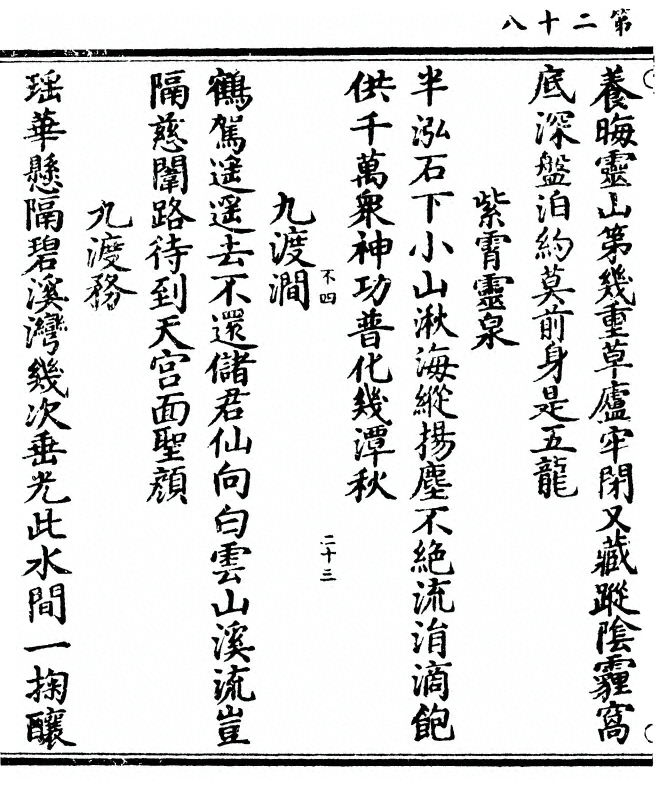 第二十八
養晦靈山第幾重草廬牢閉又藏蹤陰霾窩
底深盤泊約莫前身是五龍
紫霄靈泉
半泓石下小山湫海縱揚塵不絶流涓滴飽
供千萬衆神功普化幾潭秋
九渡澗
不四
二十三
鶴駕遥遥去不還儲君仙向白雲山溪流豈
隔慈闈路待到天宫面聖顔
九渡務
瑶華懸隔碧溪灣幾次垂光此水間一掬釀